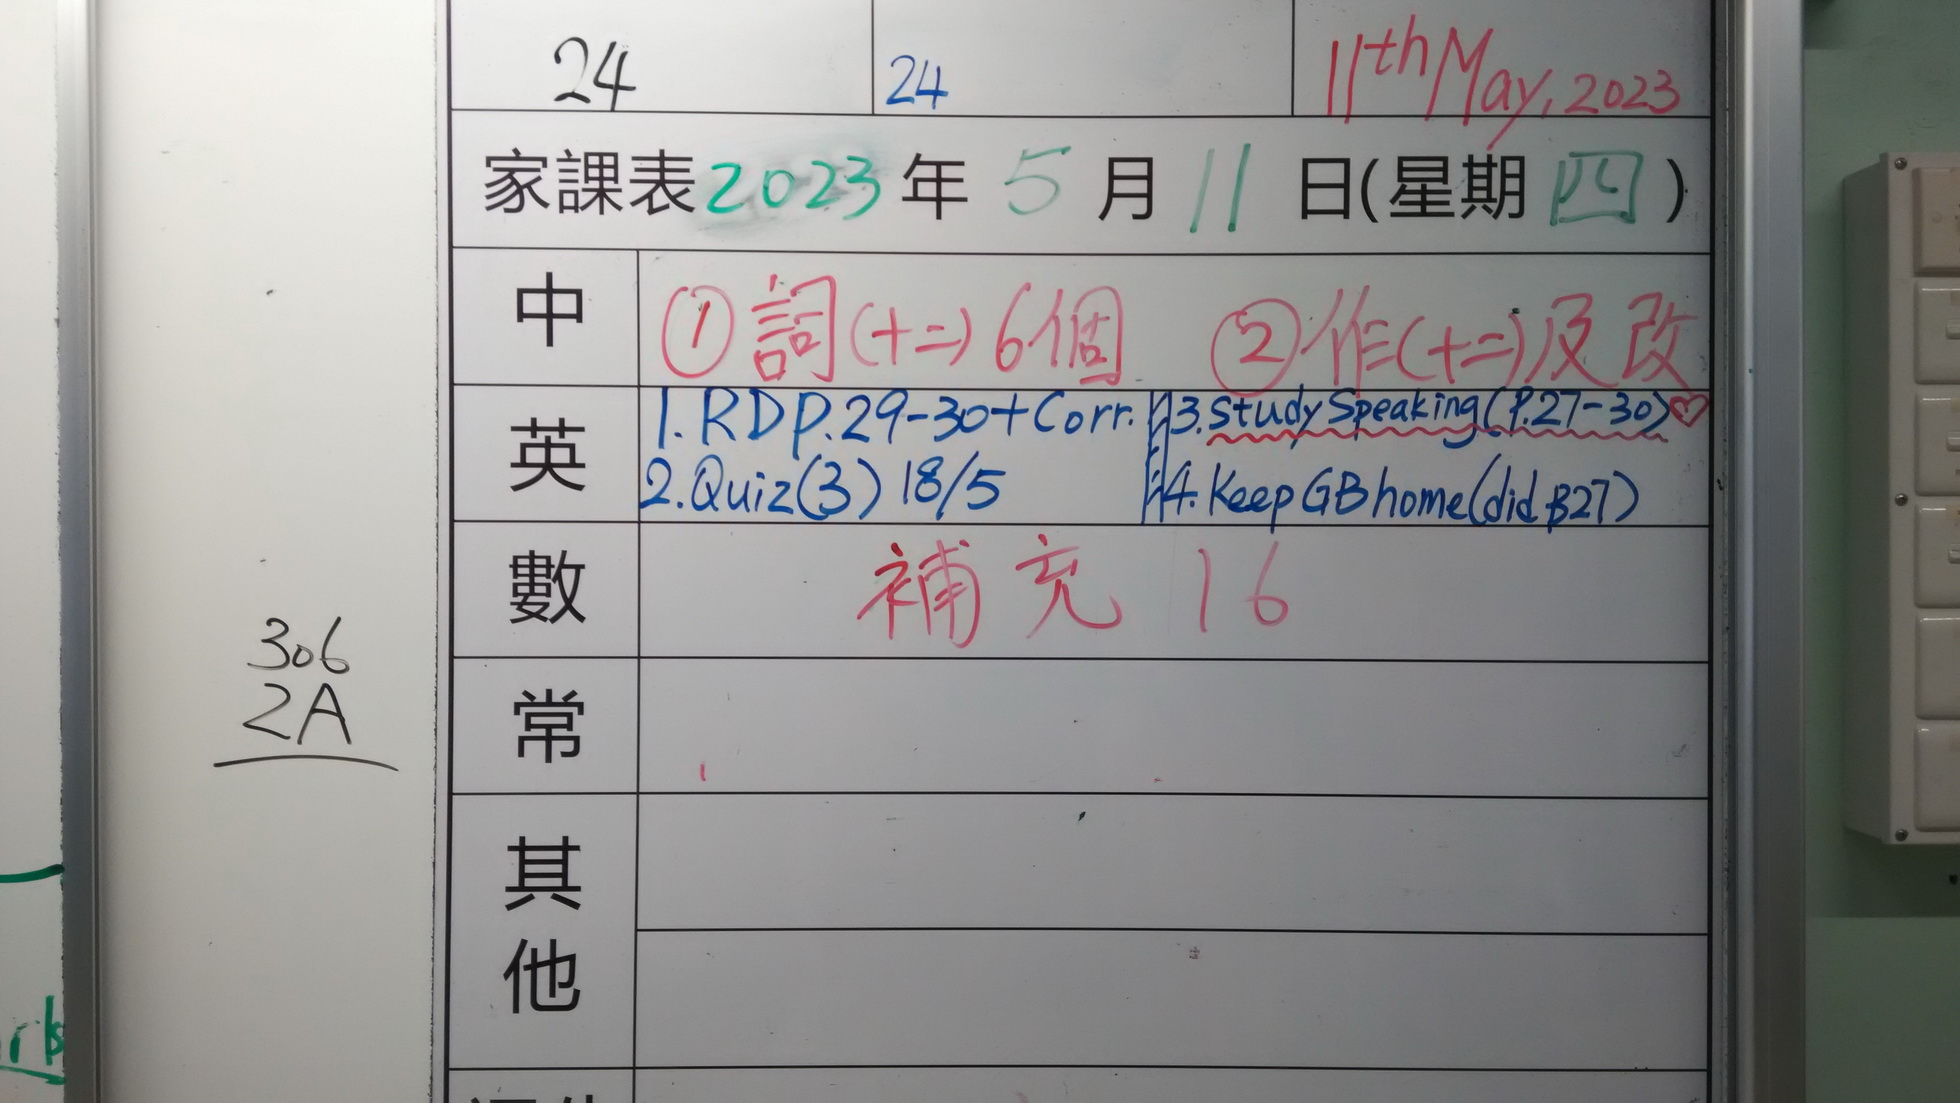 24 24 11th May, 2023
家課表2023年5月11日(星期四)
中 ①詞(十二)6個 ②作(十二)及改
英 1. RD p.29-30+Corr. 3. Study Speaking (P.27-30)♡
2. Quiz(3) 18/5 4. Keep GB home(did B27)
數 補充 16
常
其
他
306
2A